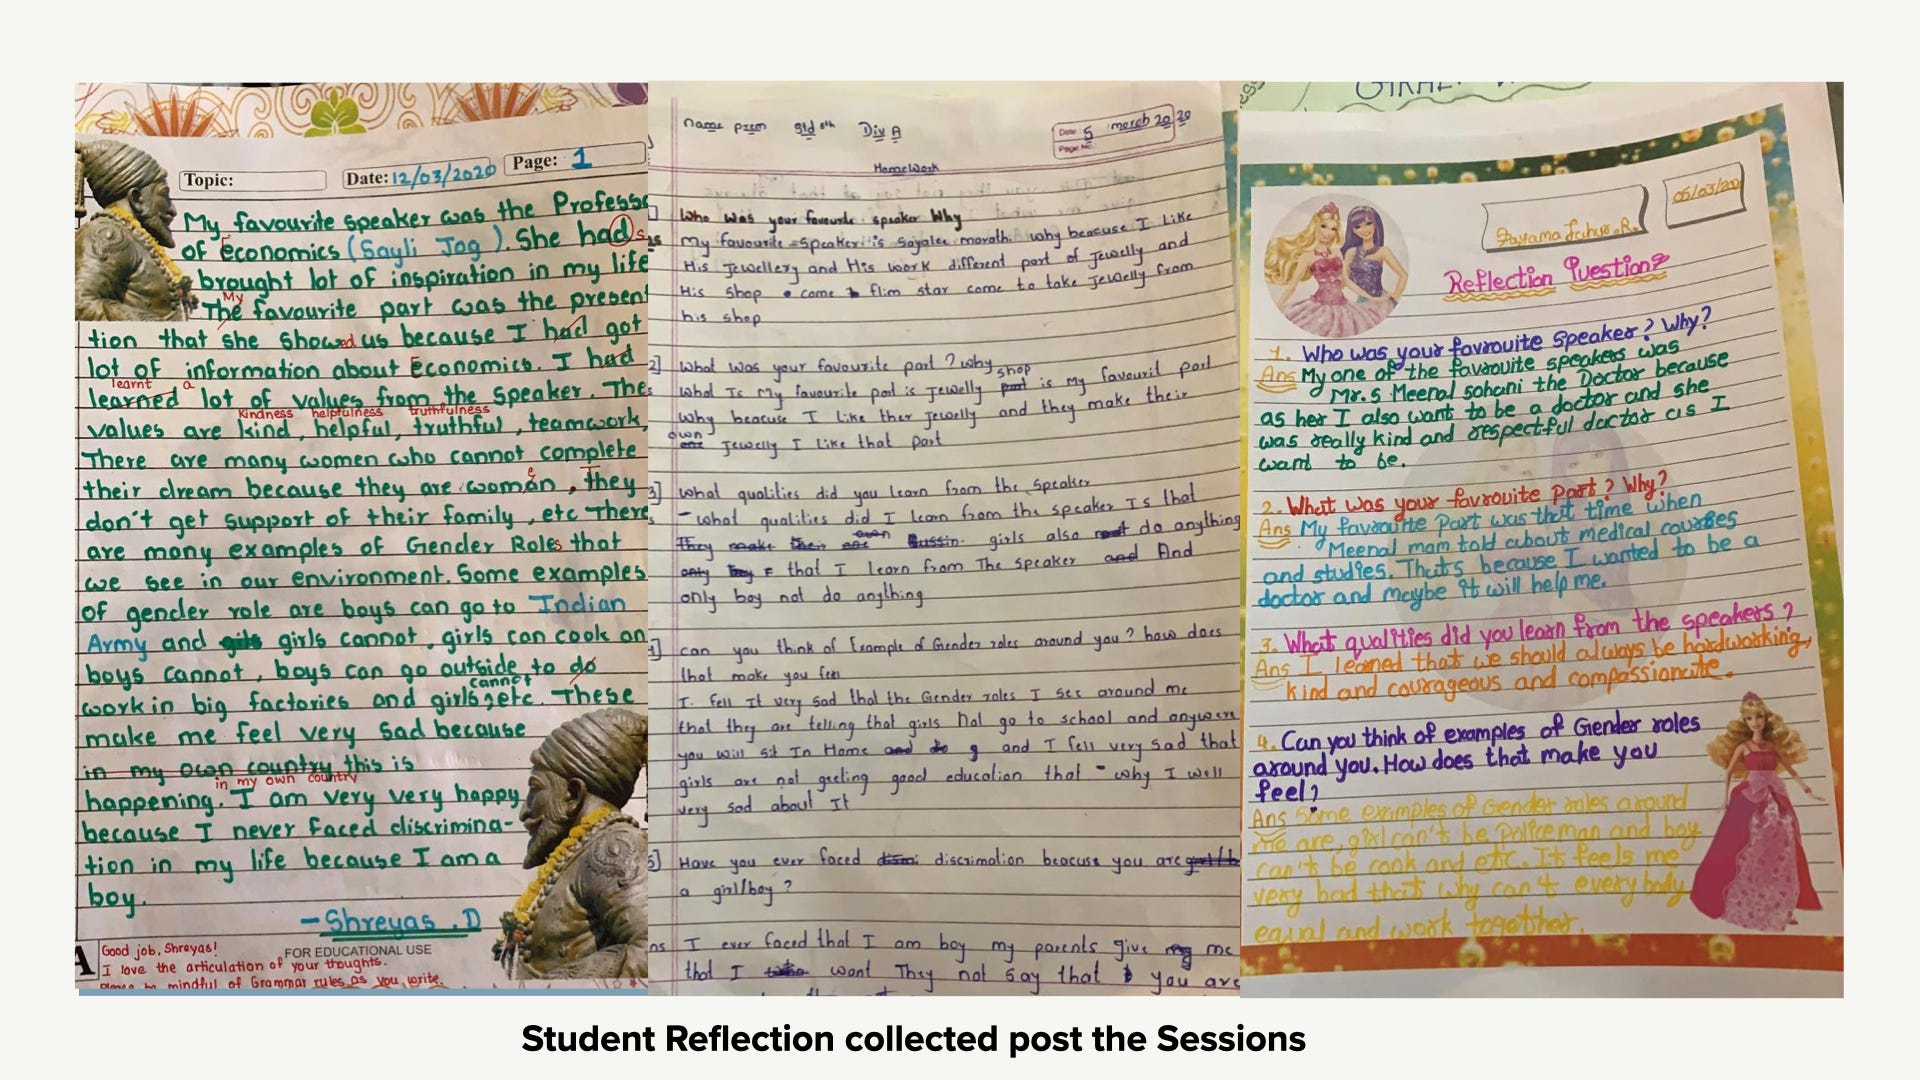 Topic:
Date: 12/03/2020
Page: 1
My favourite speaker was the Professo
of economics (Sayli Jog). She hads
brought lot of inspiration in my life
My
The favourite part was the present
tion that she showed us because I had got
lot of information about Economics. I had
learnt a
learned lot of values from the speaker. The
kindness helpfulness truthfulness
values are kind, helpful, truthful, teamwork,
There are many women who cannot complete
their dream because they are woman, They
don't get support of their family, etc There
are many examples of Gender Roles that
we see in our environment. Some examples
of gender role are boys can go to Indian
Army and girls cannot, girls can cook an
boys cannot, boys can go outside to do
cannot
work in big factories and girls, etc. These
make me feel very sad because
in my own country this is
in my own country
happening. I am very very happy
because I never faced discrimina-
tion in my life because I am a
boy.
- Shreyas. D
Good job, Shreyas!
FOR EDUCATIONAL USE
I love the articulation of your thoughts.
Please be mindful of Grammar rules as you write.
Name Prem Std 6th Div A
Date: 5 march 2020
Page No.
HomeWork
Who Was your favourite speaker Why
My favourite speaker is Sayalee marath. why beacuse I Like
His Jewellery and His work different part of Jewelly and
His shop come flim star come to take Jewelly from
his shop
2] What was your favourite part ? why
shop
What Is My favourite part is Jewelly part is My favourit part
Why beacuse I Like ther Jewelly and they make their
own
Jewelly I Like that part
3] What qualities did you learn from the speaker
- what qualities did I learn from the speaker Is that
They make their own Bussin girls also do anything
only boy that I learn from The speaker and And
only boy not do anything
can you think of Example of Gender roles around you ? how does
that make you feel
I. fell It very sad that the Gender roles I see around me
that they are telling that girls Not go to school and anywere
you will sit In Home and do g and I fell very sad that
girls are not geeting good education that - why I well
very sad about It
5] Have you ever faced discrimation beacuse you are
a girl/boy ?
ns I ever faced that I am boy my parents give me
that I want They not say that you are
05/03/20
Reflection Questions
1. Who was your favrouite Speaker? Why?
Ans My one of the favrouite speakers was
Mr.s Meenal sohani the Doctor because
as her I also want to be a doctor and she
was really kind and respectful doctor as I
want to be.
2. What was your favrouite Part? Why?
Ans My favrouite Part was that time when
Meenal mam told about medical courses
and studies. Thats because I wanted to be a
doctor and maybe it will help me.
3. What qualities did you learn from the speakers?
Ans I learned that we should always be hardworking,
kind and courageous and compassionate.
4. Can you think of examples of Gender roles
around you. How does that make you
feel?
Ans Some examples of Gender roles around
me are, girl can't be Policeman and boy
can't be cook and etc. It feels me
very bad that why can't everybody
equal and work together.
Student Reflection collected post the Sessions